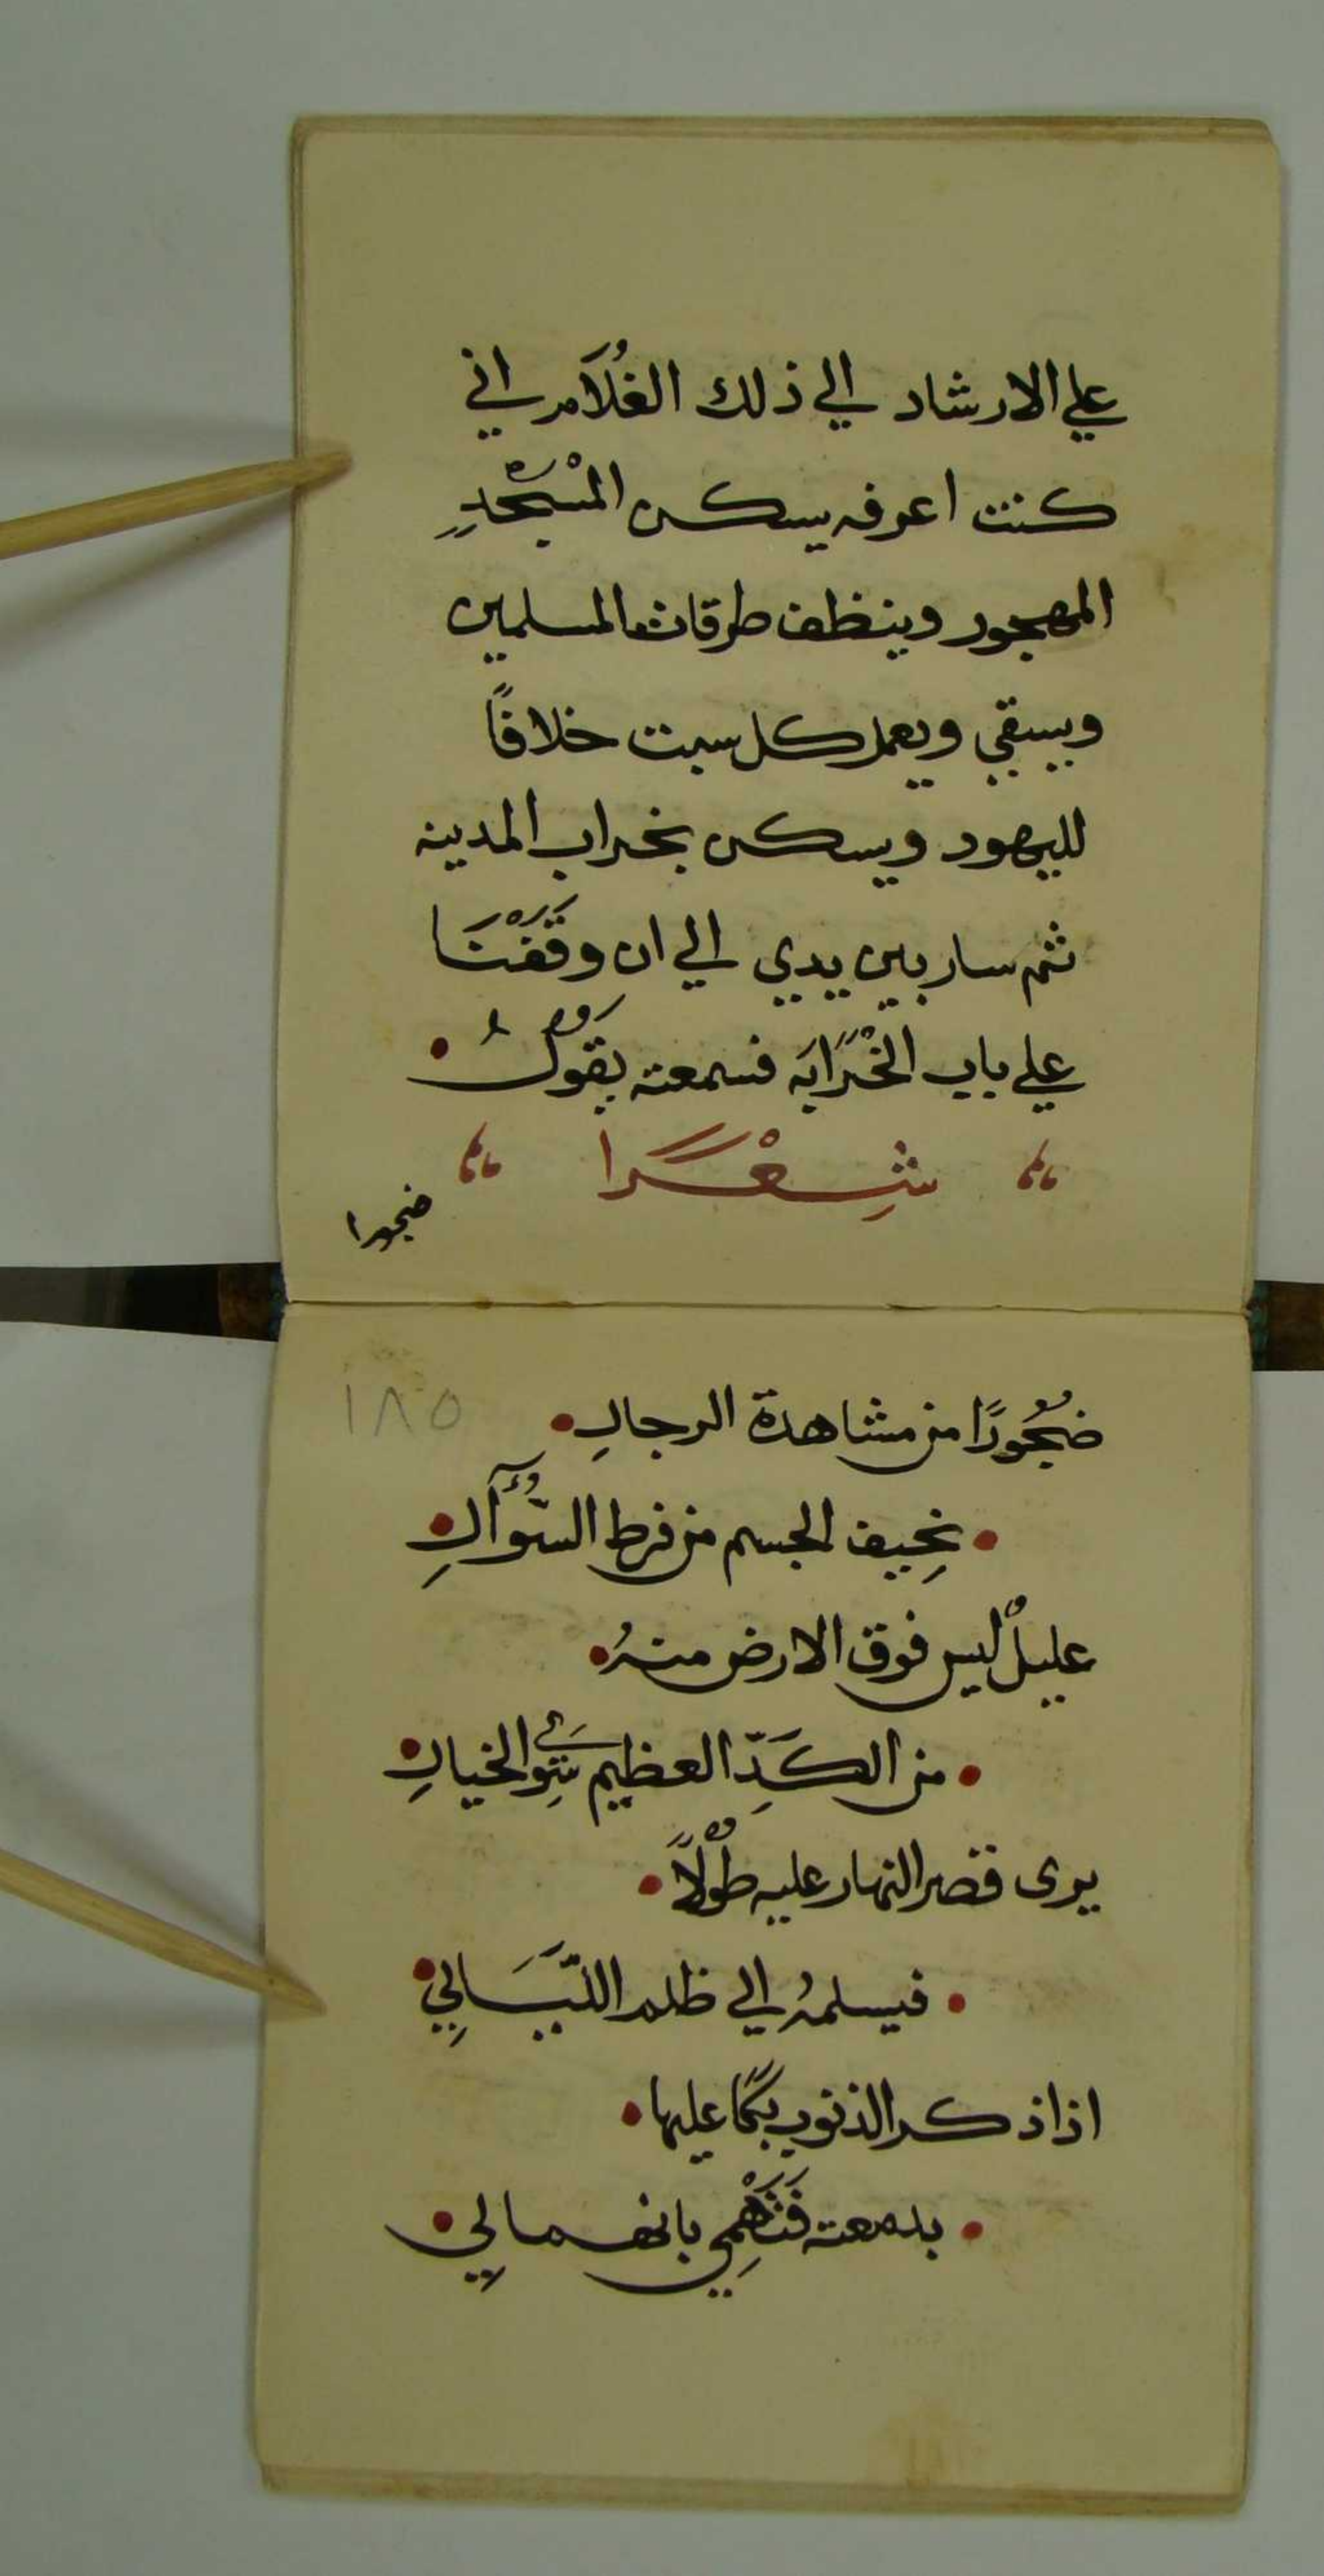 علي الارشاد الي ذلك الغُلَام اني
كنت اعرفه يسكن المسْجدِ
المهجور وينظف طرقات المسلمين
ويبقي ويعمل كل سبت خلافًا
لليهود ويسكن بخراب المدينه
ثم سار بين يدي الي ان وقَفْنَا
علي باب الخْرَابَه فسمعته يقَولُ
شِعْرًا
ضجورا
١٨٥
ضجُورًا من مشاهدة الرجالِ
نحِيف الجسم من فرط السُّؤآلِ
عليلٌ ليس فوق الارض منهُ
من الكَدِّ العظيم سِوَي الخيالِ
يرى قصر النهار عليه طُوْلًا
فيسلمهُ الي ظلم اللّيَالِي
اذا ذكر الذنوب بكًا عليها
بدمعته فَتَهْمِي بانهمالِي